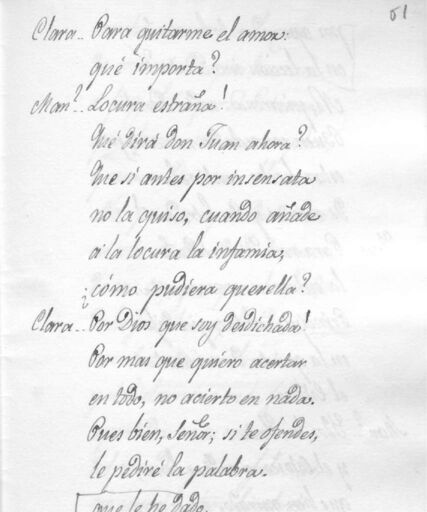 51
Clara.. Para quitarme el amor:
qué importa?
Man.l.. Locura estraña!
Qué dirá don Juan ahora?
Que si antes por insensata
no la quiso, cuando añade
a la locura la infamia,
¿cómo pudiera querella?
Clara.. Por Dios que soy desdichada!
Por mas que quiero acertar
en todo, no acierto en nada.
Pues bien, Señor; si te ofendes,
le pediré la palabra
que le he dado.